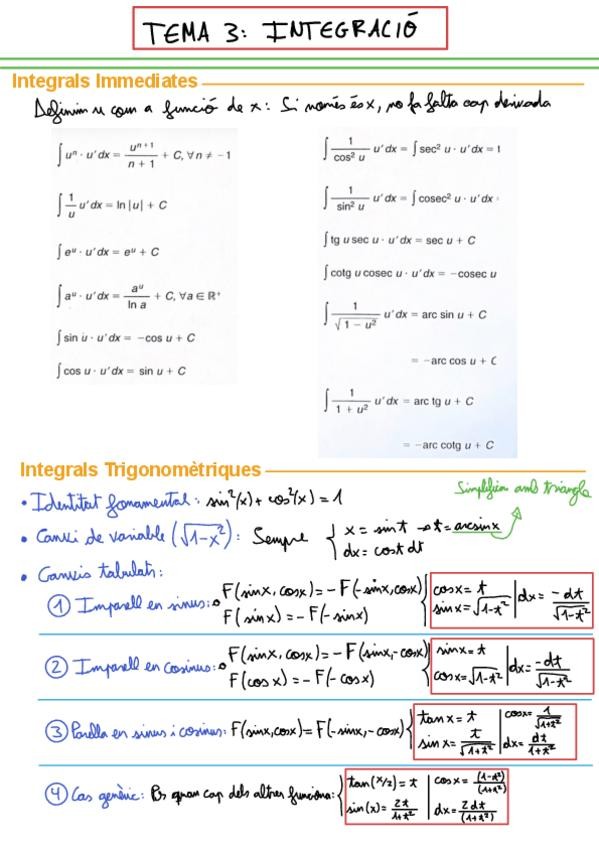 TEMA 3: INTEGRACIÓ
Integrals Immediates
Definim u com a funció de x: Si només és x, no fa falta cap derivada
∫ uⁿ · u' dx = uⁿ⁺¹/(n + 1) + C, ∀ n ≠ -1
∫ 1/u u' dx = ln |u| + C
∫ eᵘ · u' dx = eᵘ + C
∫ aᵘ · u' dx = aᵘ/ln a + C, ∀ a ∈ ℝ⁺
∫ sin u · u' dx = -cos u + C
∫ cos u · u' dx = sin u + C
∫ 1/cos² u u' dx = ∫ sec² u · u' dx =
∫ 1/sin² u u' dx = ∫ cosec² u · u' dx
∫ tg u sec u · u' dx = sec u + C
∫ cotg u cosec u · u' dx = -cosec u
∫ 1/√(1 - u²) u' dx = arc sin u + C
= -arc cos u + C
∫ 1/(1 + u²) u' dx = arc tg u + C
= -arc cotg u + C
Integrals Trigonomètriques
Simplifica amb triangle
• Identitat fonamental: sin²(x) + cos²(x) = 1
• Canvi de variable (√(1-x²)): Sempre { x = sint → t = arcsinx
dx = cost dt
• Canvis tabulats:
① Imparell en sinus: F(sinx, cosx) = -F(-sinx, cosx) { cosx = t | dx = -dt/√(1-t²)
F(sinx) = -F(-sinx) sinx = √(1-t²)
② Imparell en cosinus: F(sinx, cosx) = -F(sinx, -cosx) { sinx = t | dx = -dt/√(1-t²)
F(cosx) = -F(-cosx) cosx = √(1-t²)
③ Parella en sinus i cosinus: F(sinx, cosx) = F(-sinx, -cosx) { tanx = t | cosx = 1/√(1+t²)
sinx = t/√(1+t²) | dx = dt/(1+t²)
④ Cas genèric: Per quan cap dels altres funciona: { tan(x/2) = t | cosx = (1-t²)/(1+t²)
sin(x) = 2t/(1+t²) | dx = 2dt/(1+t²)